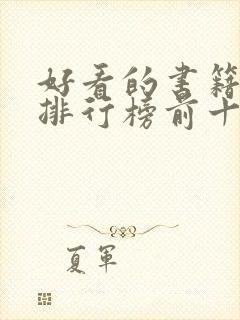 好看的书籍
排行榜前十
夏军